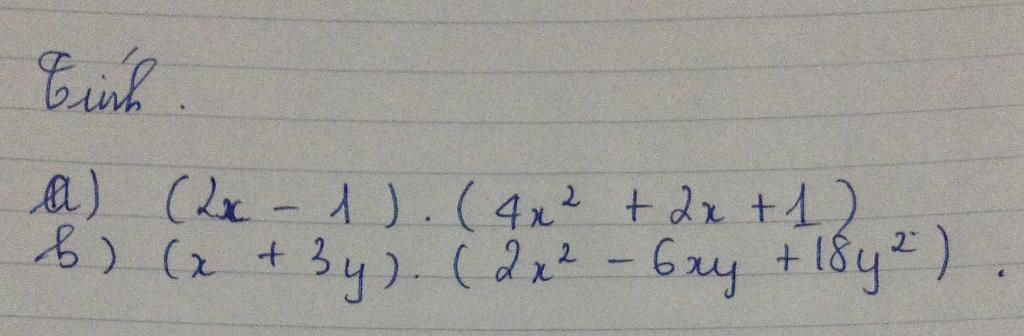 Tính.
a) (2x - 1) . (4x² + 2x + 1)
b) (x + 3y) . (2x² - 6xy + 18y²) .